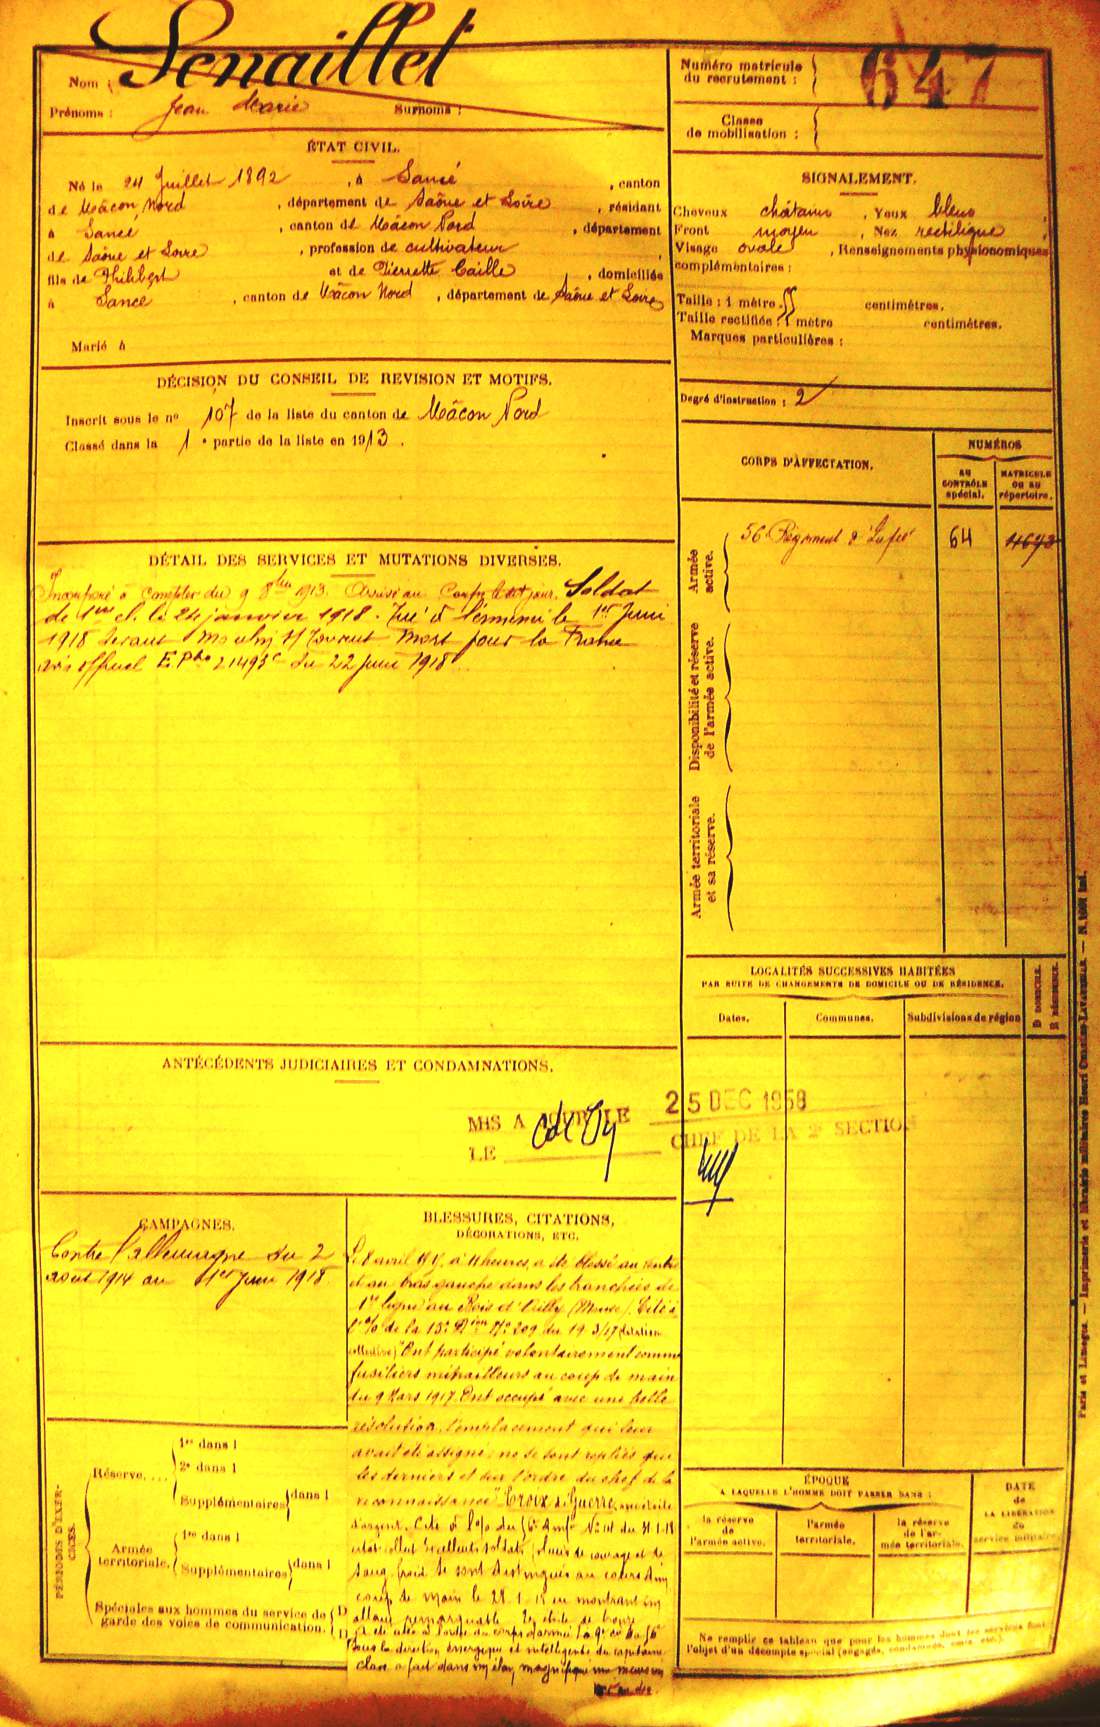 Nom : Senaillet
Prénoms : Jean Marie Surnoms :
Numéro matricule
du recrutement : 647
Classe
de mobilisation :
ÉTAT CIVIL.
Né le 24 Juillet 1892, à Sancé, canton
de Mâcon Nord, département de Saône et Loire, résidant
à Sancé, canton de Mâcon Nord, département
de Saône et Loire, profession de cultivateur
fils de Philibert et de Pierrette Caille, domiciliés
à Sancé, canton de Mâcon Nord, département de Saône et Loire
Marié à
SIGNALEMENT.
Cheveux châtains, Yeux bleus
Front moyen, Nez rectiligne
Visage ovale, Renseignements physionomiques
complémentaires :
Taille : 1 mètre 55 centimètres.
Taille rectifiée : 1 mètre centimètres.
Marques particulières :
Degré d'instruction : 2
DÉCISION DU CONSEIL DE REVISION ET MOTIFS.
Inscrit sous le nº 107 de la liste du canton de Mâcon Nord
Classé dans la 1e partie de la liste en 1913.
CORPS D'AFFECTATION.
NUMÉROS
AU
CONTRÔLE
spécial.
MATRICULE
OU AU
répertoire.
Armée
active.
56 Régiment d'Infie 64
Disponibilité et réserve
de l'armée active.
Armée territoriale
et sa réserve.
DÉTAIL DES SERVICES ET MUTATIONS DIVERSES.
Incorporé à compter du 9 8bre 1913. Arrivé au Corps le dit jour. Soldat
de 1ère cl. le 24 janvier 1918. Tué à l'ennemi le 1er Juin
1918 devant Moulin St Mort pour la France
avis officiel du 22 juin 1918
LOCALITÉS SUCCESSIVES HABITÉES
PAR SUITE DE CHANGEMENTS DE DOMICILE OU DE RÉSIDENCE.
Dates.
Communes.
Subdivisions de région
D DOMICILE.
R RÉSIDENCE.
ANTÉCÉDENTS JUDICIAIRES ET CONDAMNATIONS.
MIS A JOUR LE 25 DEC 1958
LE CHEF DE LA 2e SECTION
CAMPAGNES.
Contre l'Allemagne du 2
août 1914 au 1er juin 1918.
BLESSURES, CITATIONS,
DÉCORATIONS, ETC.
Le 8 avril à heures, a été blessé au ventre
et au bras gauche dans les tranchées de
1re ligne au Bois d'Ailly (Meuse). Cité à
l'o/o de la 15e Dion No 209 du 19 3/17 (citation
collective) "Ont participé volontairement comme
fusiliers mitrailleurs au coup de main
du 9 Mars 1917. Ont occupé avec une belle
résolution l'emplacement qui leur
avait été assigné ne se sont repliés que
les derniers et sur l'ordre du chef de la
reconnaissance" Croix de Guerre, étoile
d'argent. Cité à l'o/o du
Excellents soldats de courage et de
sang froid se sont distingués au cours d'un
coup de main le 28-1-18 en montrant un
allant remarquable. étoile de bronze
Sous la direction énergique et intelligente du capitaine
a fait dans un élan magnifique
PÉRIODES D'EXERCICES.
Réserve....
1re dans l
2e dans l
Supplémentaires dans l
Armée
territoriale.
1re dans l
Supplémentaires dans l
Spéciales aux hommes du service de
garde des voies de communication.
D
D
ÉPOQUE
A LAQUELLE L'HOMME DOIT PASSER DANS :
la réserve
de
l'armée active.
l'armée
territoriale.
la réserve
de l'ar-
mée territoriale.
DATE
de
LA LIBÉRATION
du
service militaire.
Ne remplir ce tableau que pour les hommes dont les services font
l'objet d'un décompte spécial (engagés, condamnés, omis, etc.).
Paris et Limoges. — Imprimerie et librairie militaires Henri CHARLES-LAVAUZELLE.